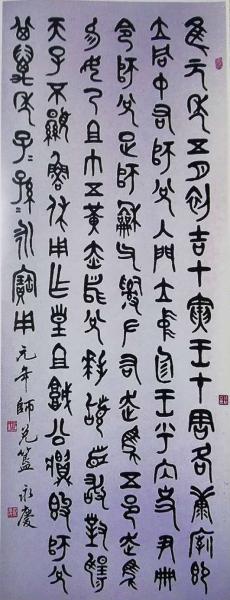 隹元年五月初吉甲寅王才周各康廟即
立同中右師兌入門立中廷王乎內史尹冊
令師兌疋師龢父𤔲左右走馬五邑走馬
易女乃且巾五黃赤舄兌拜𩒨首敢對揚
天子不顯魯休用乍皇且城公簋師兌
其萬年子=孫=永寶用 元年師兌簋 永慶